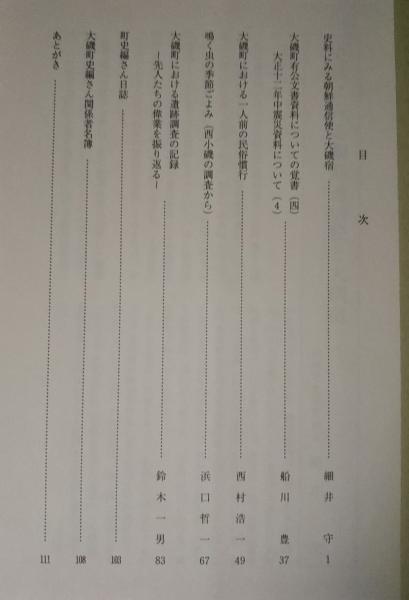 目次
史料にみる朝鮮通信使と大磯宿……細井 守 1
大磯町有公文書資料についての覚書（四）
大正十二年中震災資料について（4）……船川 豊 37
大磯町における一人前の民俗慣行……西村浩一 49
鳴く虫の季節ごよみ（西小磯の調査から）……浜口哲一 67
大磯町における遺跡調査の記録
―先人たちの偉業を振り返る―……鈴木一男 83
町史編さん日誌……103
大磯町史編さん関係者名簿……108
あとがき……111